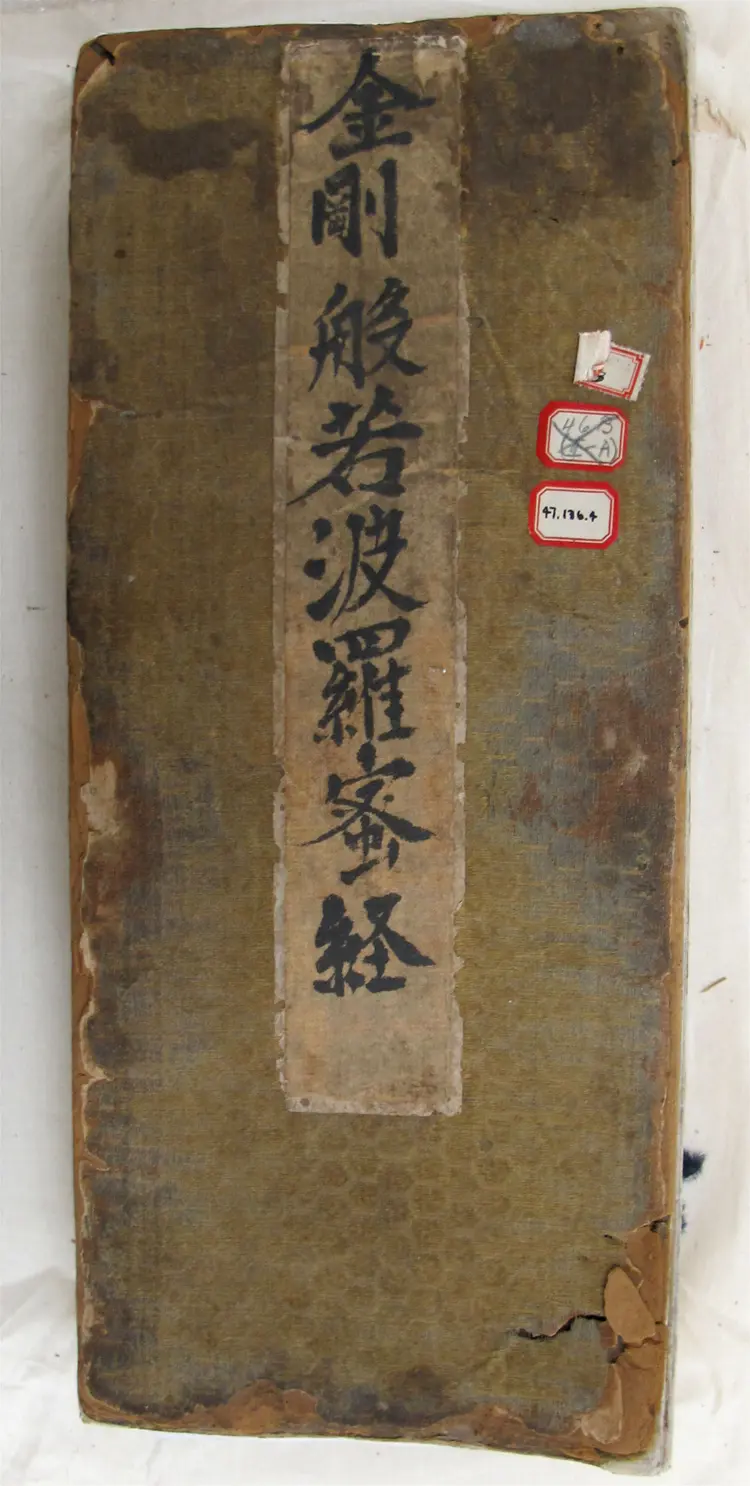 金剛般若波羅蜜経
46B
(1-A)
47.136.4